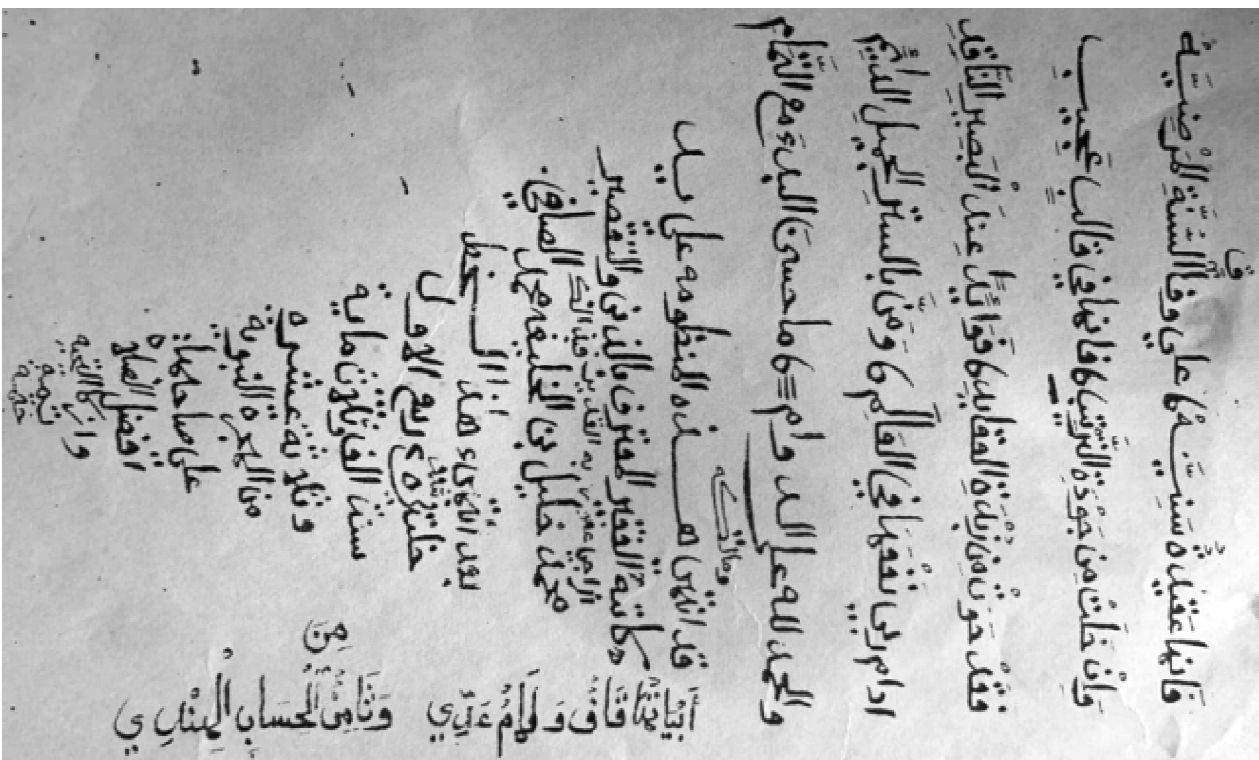 فانها عقيدة سنية على وفق السنة المرضية
وان خلت من جودة الترتيب فانها في قالب عجيب
فقد حوت من زبدة العقايد فوائد عند البصير الناقد
ادام ربي نفعها في العالم ومن بالستر الجميل الدايم
والحمد لله على الدوام ما حسن البدء مع التمام
قد انتهى هذه المنظومة على يد
كاتبه الفقير المعترف بالذنب والتقصير
محمد خليل بن الخليفه محمد الصافي
بعد انتهاء هذا
ربيع الاول
سنة الف وثلاث ماية
وثلاثة عشره
من الهجرة النبوية
على صاحبها
افضل الصلاة
وازكى التحية
أبياتها قاف ولام عندي وثامن من الحساب الهندي